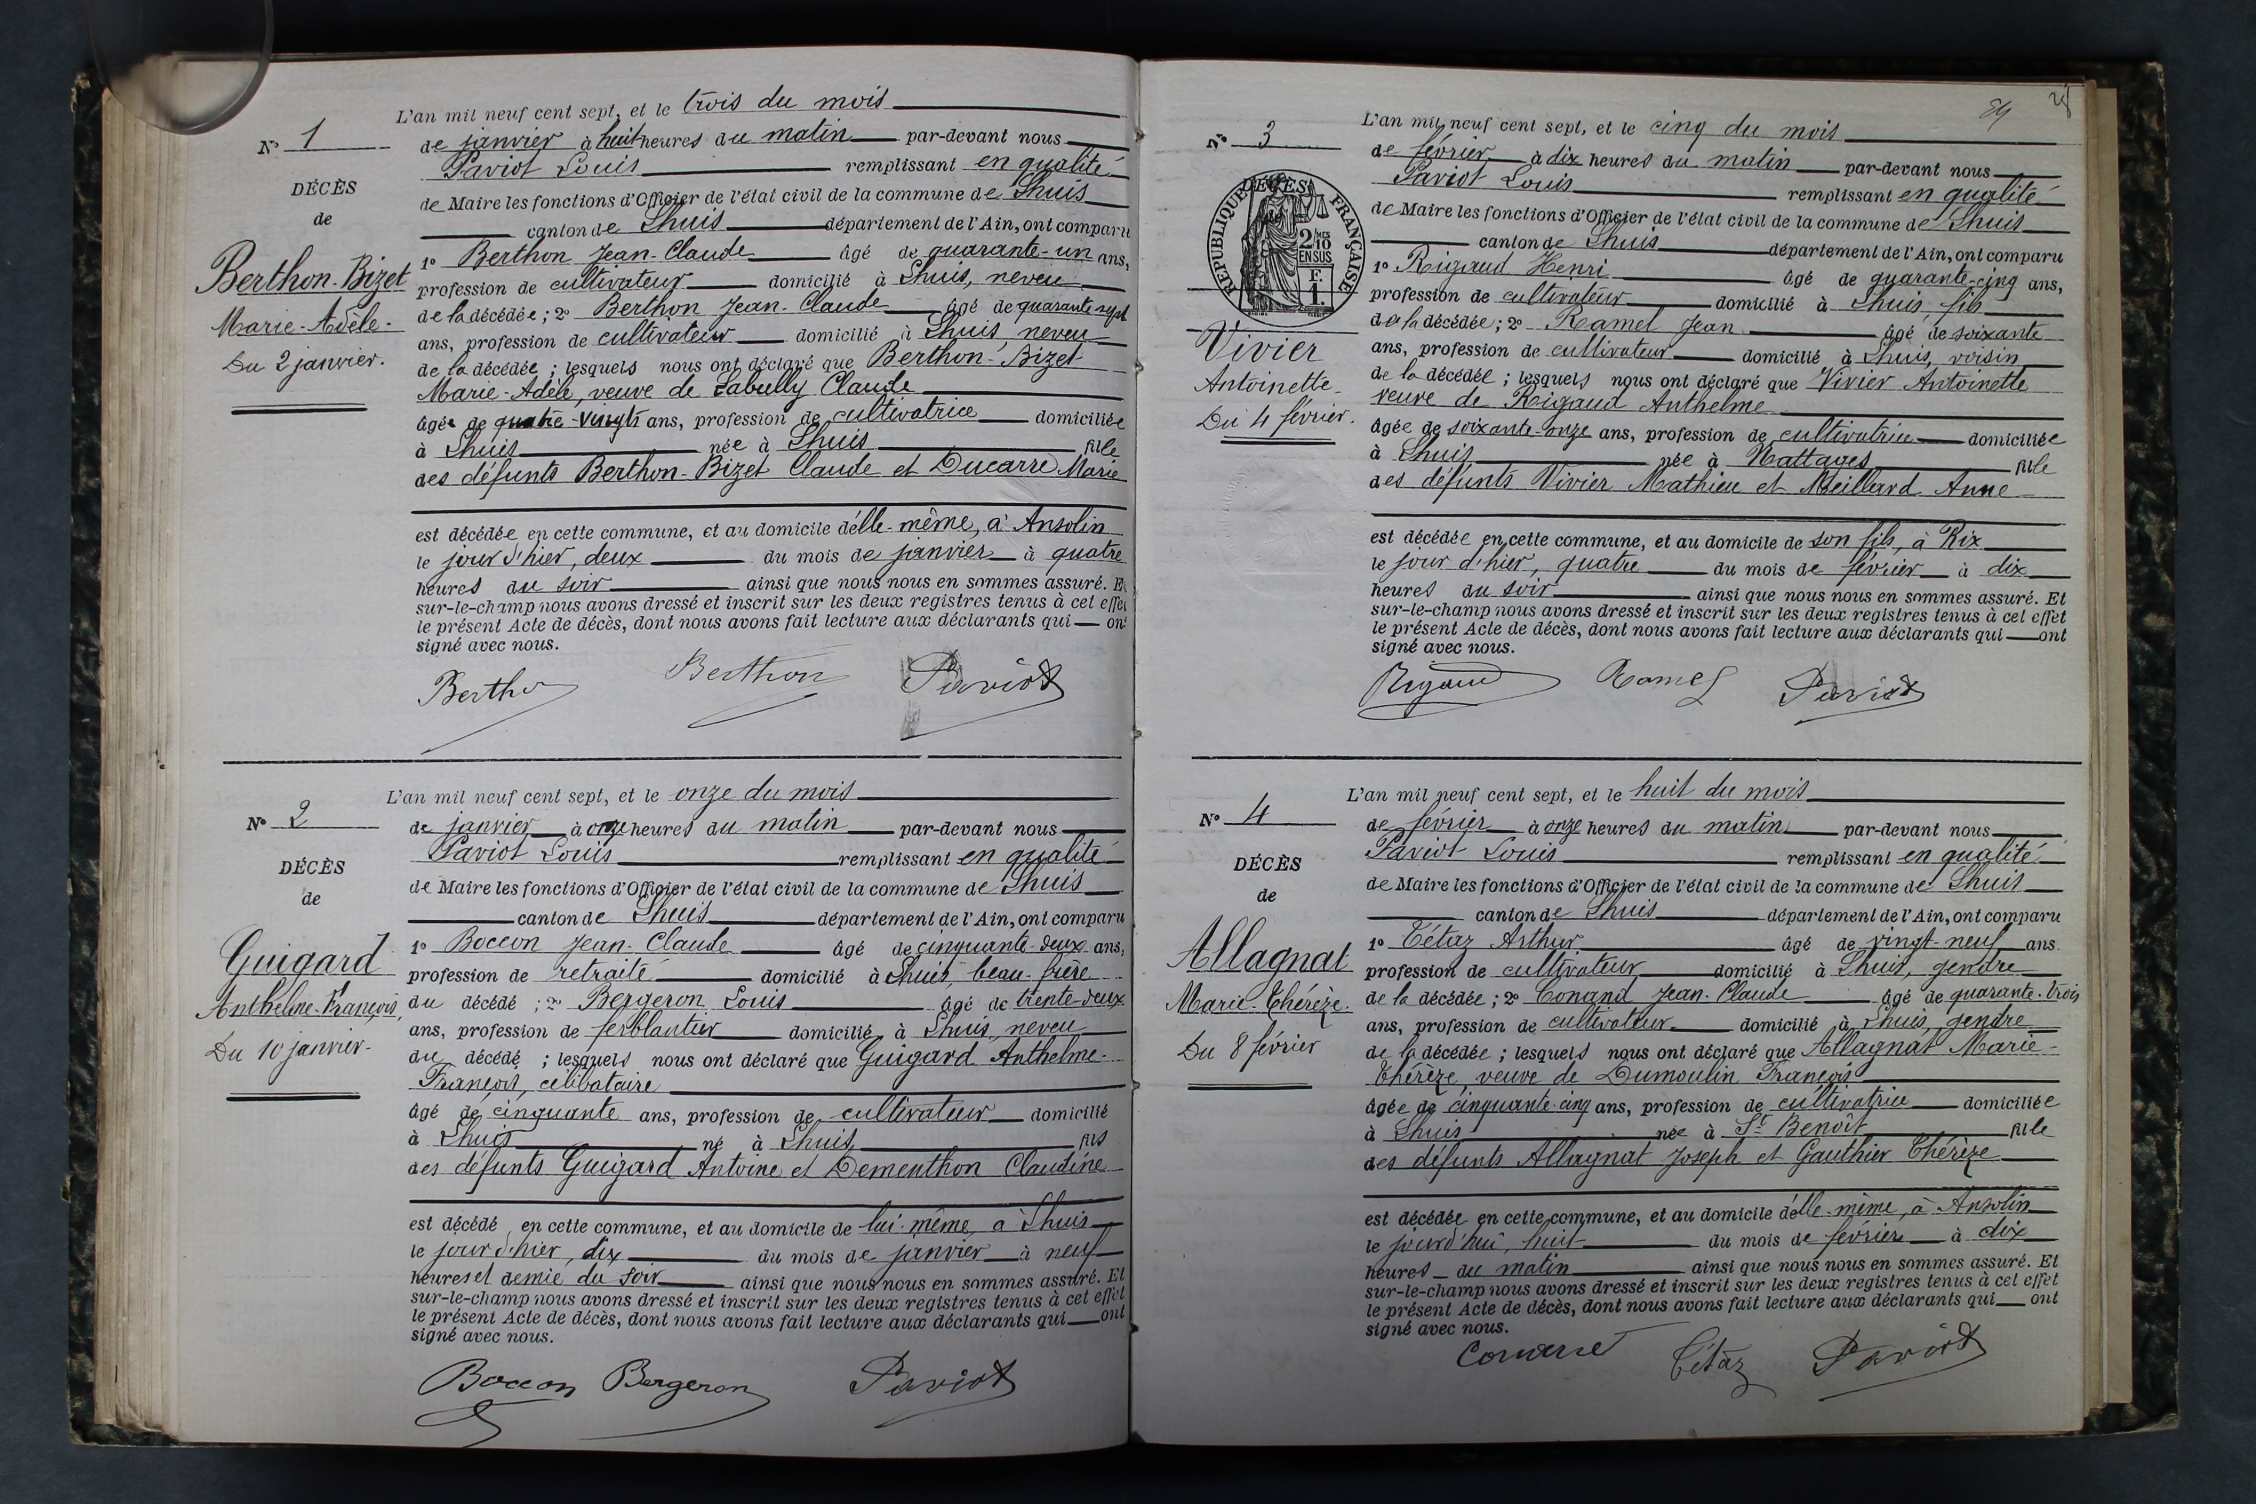 N° 1
DÉCÈS
de
Berthon-Bizet
Marie-Adèle-
Du 2 janvier.
L'an mil neuf cent sept, et le trois du mois
de janvier à huit heures du matin par-devant nous
Paviot Louis remplissant en qualité
de Maire les fonctions d'Officier de l'état civil de la commune de Lhuis
canton de Lhuis département de l'Ain, ont comparu
1° Berthon Jean-Claude âgé de quarante-un ans,
profession de cultivateur domicilié à Lhuis, neveu
de la décédée ; 2° Berthon Jean-Claude âgé de quarante sept
ans, profession de cultivateur domicilié à Lhuis, neveu
de la décédée ; lesquels nous ont déclaré que Berthon-Bizet
Marie-Adèle, veuve de Labully Claude
âgée de quatre-vingts ans, profession de cultivatrice domiciliée
à Lhuis née à Lhuis fille
des défunts Berthon-Bizet Claude et Ducarre Marie
est décédée en cette commune, et au domicile d'elle-même, à Ansolin
le jour d'hier, deux du mois de janvier à quatre
heures du soir ainsi que nous nous en sommes assuré. Et
sur-le-champ nous avons dressé et inscrit sur les deux registres tenus à cet effet
le présent Acte de décès, dont nous avons fait lecture aux déclarants qui ont
signé avec nous.
Berthon Berthon Paviot
N° 2
DÉCÈS
de
Guigard
Anthelme-François
Du 10 janvier-
L'an mil neuf cent sept, et le onze du mois
de janvier à onze heures du matin par-devant nous
Paviot Louis remplissant en qualité
de Maire les fonctions d'Officier de l'état civil de la commune de Lhuis
canton de Lhuis département de l'Ain, ont comparu
1° Boccon Jean-Claude âgé de cinquante-deux ans,
profession de retraité domicilié à Lhuis, beau-frère
du décédé ; 2° Bergeron Louis âgé de trente-deux
ans, profession de ferblantier domicilié à Lhuis, neveu
du décédé ; lesquels nous ont déclaré que Guigard Anthelme-
François, célibataire
âgé de cinquante ans, profession de cultivateur domicilié
à Lhuis né à Lhuis fils
des défunts Guigard Antoine et Dementhon Claudine
est décédé en cette commune, et au domicile de lui-même, à Lhuis
le jour d'hier, dix du mois de janvier à neuf
heures et demie du soir ainsi que nous nous en sommes assuré. Et
sur-le-champ nous avons dressé et inscrit sur les deux registres tenus à cet effet
le présent Acte de décès, dont nous avons fait lecture aux déclarants qui ont
signé avec nous.
Boccon Bergeron Paviot
N° 3
DÉCÈS
RÉPUBLIQUE FRANÇAISE
2/10 MES EN SUS
F. 1.
Vivier
Antoinette-
Du 4 février.
L'an mil neuf cent sept, et le cinq du mois
de février à dix heures du matin par-devant nous
Paviot Louis remplissant en qualité
de Maire les fonctions d'Officier de l'état civil de la commune de Lhuis
canton de Lhuis département de l'Ain, ont comparu
1° Rigaud Henri âgé de quarante-cinq ans,
profession de cultivateur domicilié à Lhuis, fils
de la décédée ; 2° Ramel Jean âgé de soixante
ans, profession de cultivateur domicilié à Lhuis, voisin
de la décédée ; lesquels nous ont déclaré que Vivier Antoinette
veuve de Rigaud Anthelme
âgée de soixante-onze ans, profession de cultivatrice domiciliée
à Lhuis née à Nattages fille
des défunts Vivier Mathieu et Meillard Anne
est décédée en cette commune, et au domicile de son fils, à Rix
le jour d'hier, quatre du mois de février à dix
heures du soir ainsi que nous nous en sommes assuré. Et
sur-le-champ nous avons dressé et inscrit sur les deux registres tenus à cet effet
le présent Acte de décès, dont nous avons fait lecture aux déclarants qui ont
signé avec nous.
Rigaud Ramel Paviot
N° 4
DÉCÈS
de
Allagnat
Marie-Thérèze.
Du 8 février
L'an mil neuf cent sept, et le huit du mois
de février à onze heures du matin par-devant nous
Paviot Louis remplissant en qualité
de Maire les fonctions d'Officier de l'état civil de la commune de Lhuis
canton de Lhuis département de l'Ain, ont comparu
1° Tétaz Arthur âgé de vingt-neuf ans
profession de cultivateur domicilié à Lhuis, gendre
de la décédée ; 2° Conand Jean-Claude âgé de quarante-trois
ans, profession de cultivateur domicilié à Lhuis, gendre
de la décédée ; lesquels nous ont déclaré que Allagnat Marie-
Thérèze, veuve de Dumoulin François
âgée de cinquante-cinq ans, profession de cultivatrice domiciliée
à Lhuis née à St Benoît fille
des défunts Allagnat Joseph et Gauthier Thérèze
est décédée en cette commune, et au domicile d'elle-même, à Ansolin
le jourd'hui, huit du mois de février à dix
heures du matin ainsi que nous nous en sommes assuré. Et
sur-le-champ nous avons dressé et inscrit sur les deux registres tenus à cet effet
le présent Acte de décès, dont nous avons fait lecture aux déclarants qui ont
signé avec nous.
Conand Tétaz Paviot